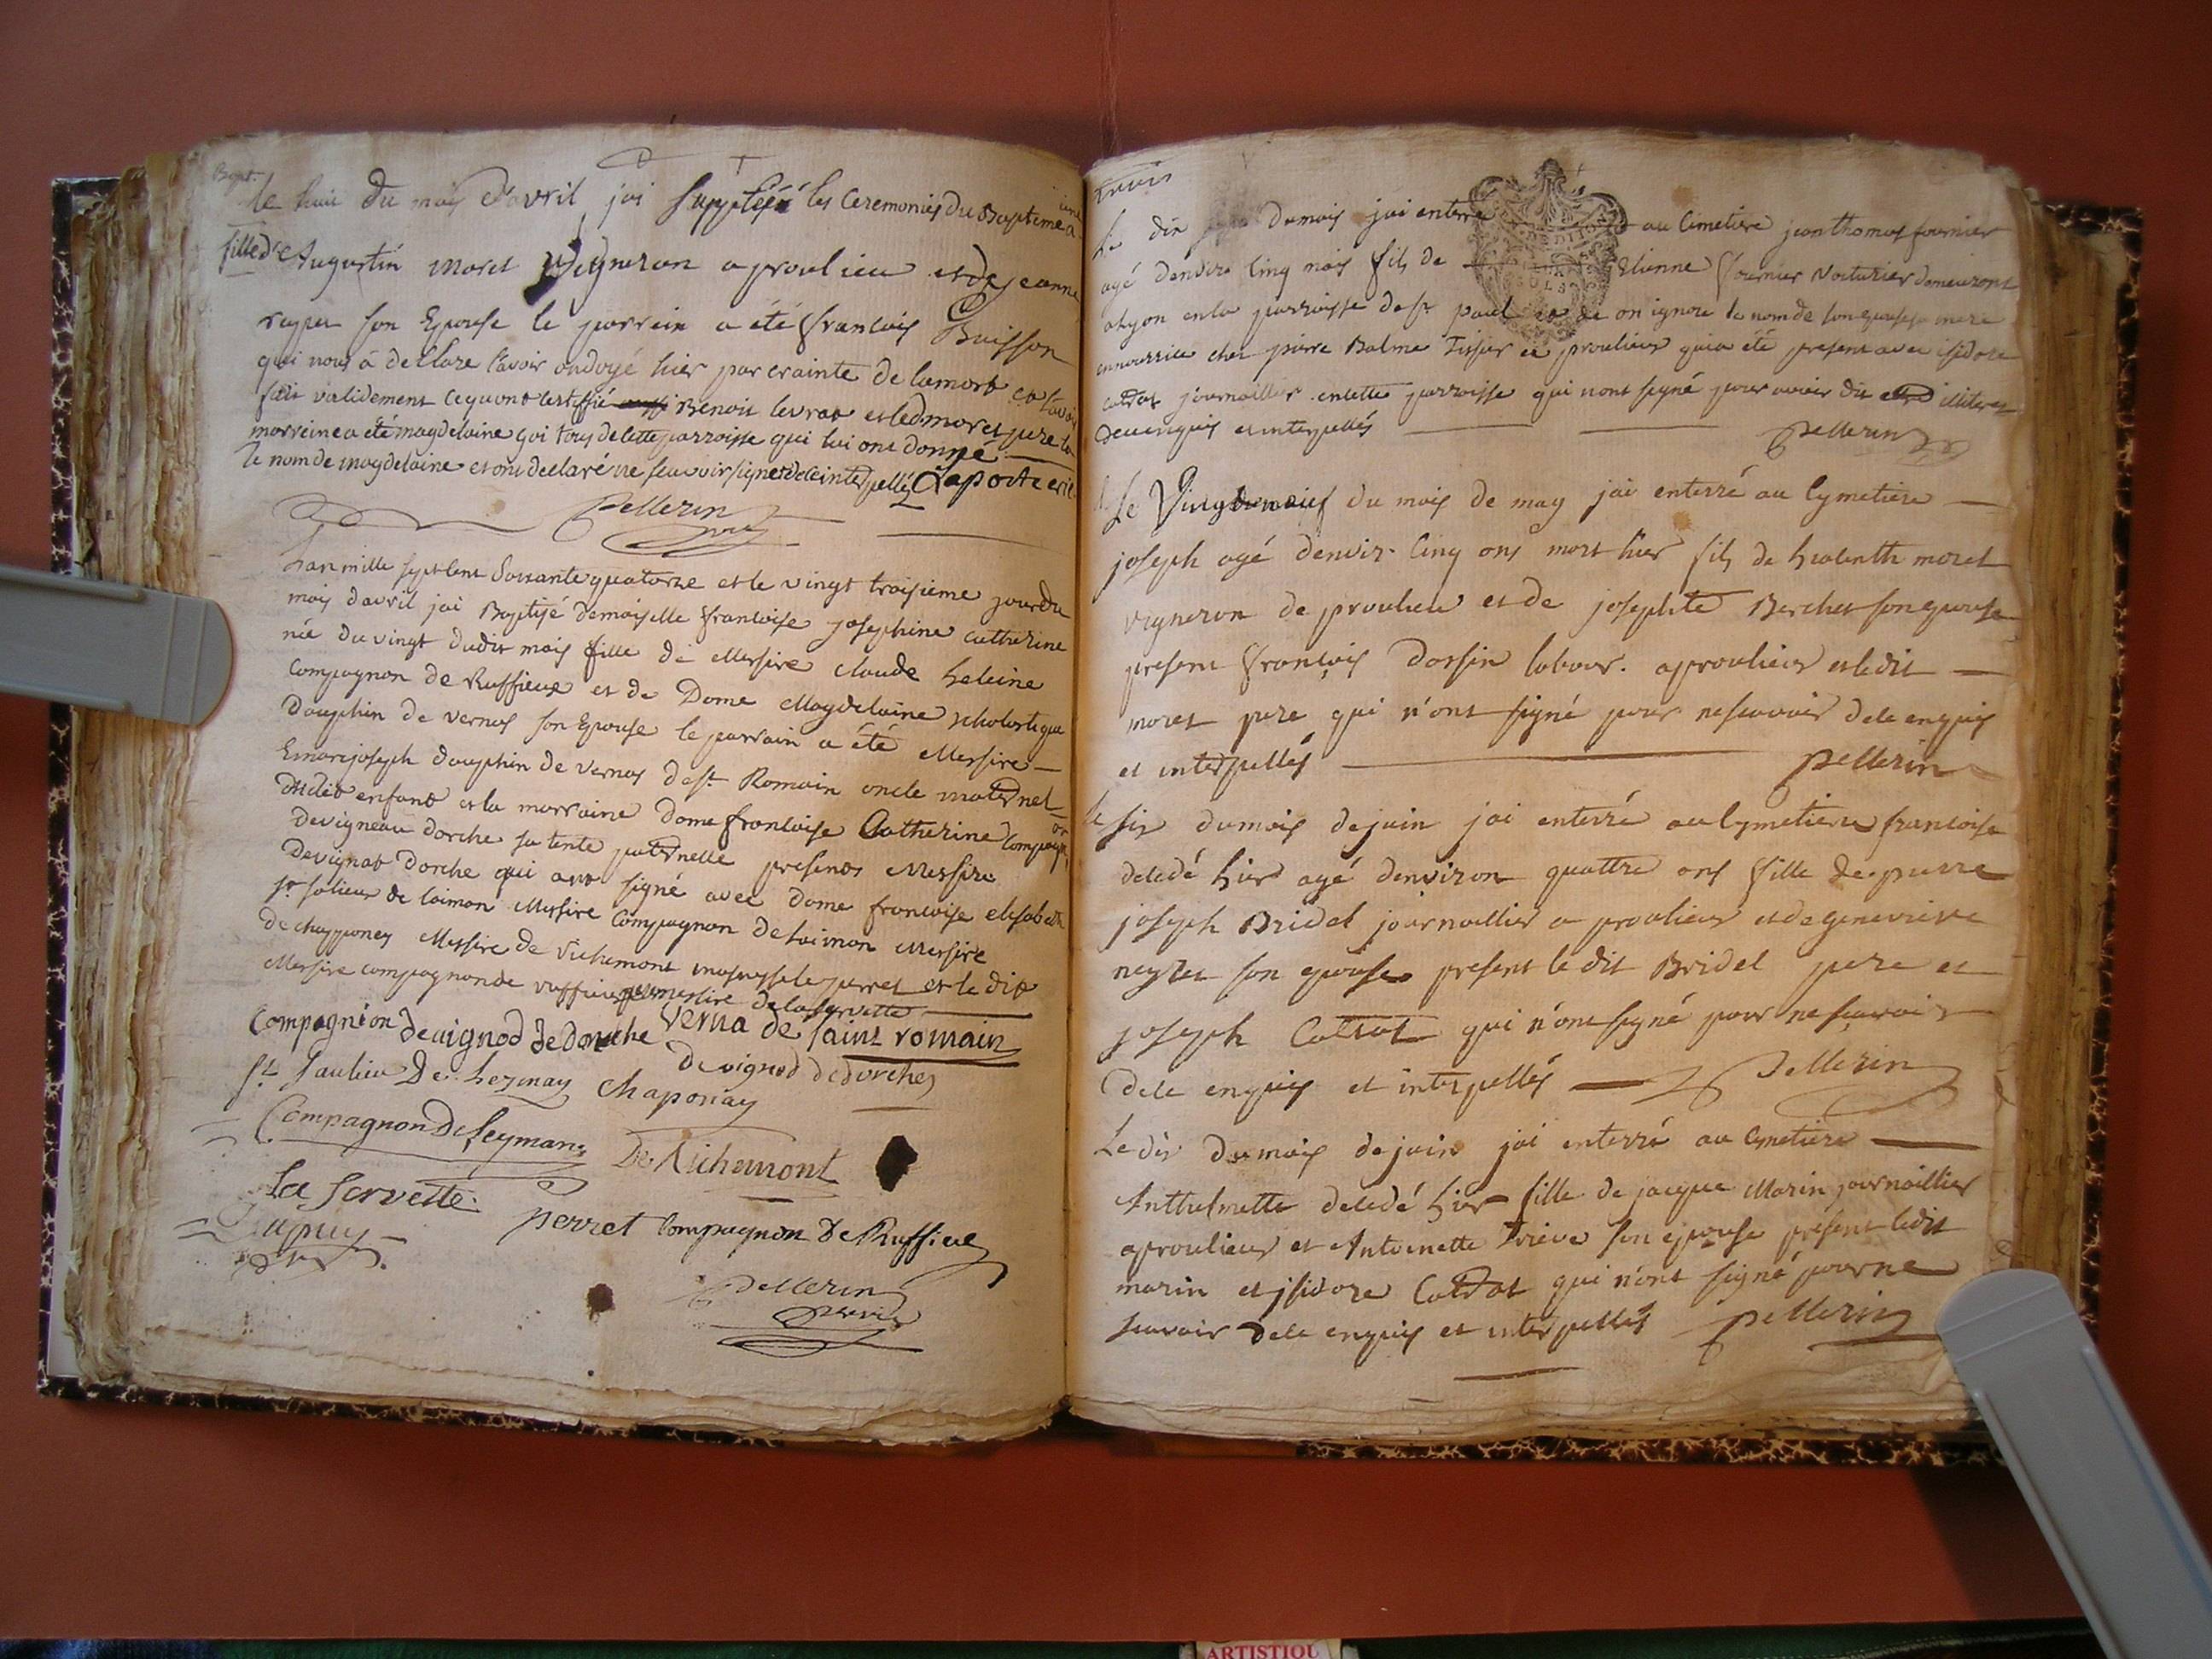 Bapt.
le huit du mois d'avril jai suppléé les Ceremonies du Bapteme a une
fille d'Augustin moret Vigneron a proulieu et de jeanne
son Epouse le parrein a été francois Buisson
qui nous à declare l'avoir ondoyé hier par crainte de la mort et l'avoir
fait validement ce qu'ont certiffié Benoit levrat et led. moret pere la
marreine a été magdelaine goi tous de cette parroisse qui lui ont donné
le nom de magdelaine et ont declaré ne scavoir signer de ce interpellés Laporte
Pellerin
Lan mille sept cent soixante quatorze et le vingt troisieme jour du
mois d'avril jai Baptisé demoiselle francoise josephine catherine
née du vingt dudit mois fille de Messire claude heleine
Compagnon de Ruffieux et de Dame Magdelaine scholastique
Dauphin de vernas son Epouse le parrain a été Messire
Emarc joseph dauphin de vernas de st Romain oncle maternel
dudit enfant et la marraine dame francoise Catherine Compagnon
devigneau dorche sa tente paternelle presents Messire
devignat dorche qui ont signé avec dame francoise elisabeth
st. solieux de loimon Messire Compagnon de loimon Messire
de chapponey Messire de Vichemont perret et le dit
Messire compagnon de ruffieux Messire de laservette
Compagnion devignod de dorche Verna de saint romain
devignod de dorches
St. Saulieu De Chaponay
Compagnon De Leyman
De Richemont
La Servette
Dupuy
perret Compagnon De Ruffieu
Pellerin
Le dix du mois jai enterré au Cimetiere jean thomas fournier
agé d'environ cinq mois fils de Etienne fournier Voiturier demeurant
alyon en la parroisse de st paul on ignore le nom de son epouse mere
en nourrice chez pierre Balme Tissier a proulieu qui a été present avec isidore
cottat journaillier en cette parroisse qui n'ont signé pour avoir dit illiteres
de ce enquis et interpellés
Pellerin
Le Vingt neuf du mois de may jai enterré au Cymetiere
joseph agé denvir. Cinq ans mort hier fils de hialenth moret
vigneron de proulieu et de josephte Berchet son epouse
present François Dossin labour. a proulieu et ledit
moret pere qui n'ont signé pour ne scavoir de ce enquis
et interpellés
Pellerin
le six du mois de juin jai enterré au Cymetiere francoise
decedé hier agé denviron quattre ans fille de pierre
joseph Bridel journaillier a proulieu et de genevieve
son epouse present le dit Bridel pere et
joseph Cottat qui n'ont signé pour ne scavoir
de ce enquis et interpellés
Pellerin
Le dix du mois de juin jai enterré au Cymetiere
Anthelmette decedé hier fille de jacque Marin journaillier
a proulieu et Antoinette Trieve son epouse present ledit
marin et jsidore Cottat qui n'ont signé pour ne
scavoir de ce enquis et interpellés Pellerin
ARTISTIQU